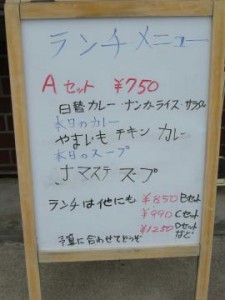 ランチメニュー
Aセット ¥750
日替カレー・ナンかライス・サラダ
本日のカレー
やまいも チキン カレー
本日のスープ
ナマステ スープ
ランチは他にも ¥850 Bセット
¥990 Cセット
¥1250 Dセット
など
予算に合わせてどうぞ